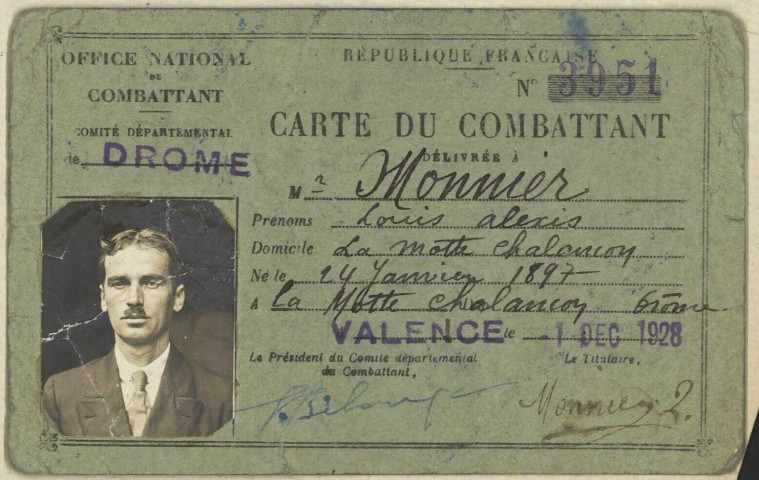 OFFICE NATIONAL
DU
COMBATTANT
COMITÉ DÉPARTEMENTAL
de DROME
RÉPUBLIQUE FRANÇAISE
N° 3951
CARTE DU COMBATTANT
DÉLIVRÉE À
Mr Monnier
Prénoms Louis alexis
Domicile La motte chalancon
Né le 24 Janvier 1897
A la Motte chalancon Drôme
VALENCE le -1 DEC 1928
Le Président du Comité départemental
du Combattant,
Le Titulaire,
Monnier L.